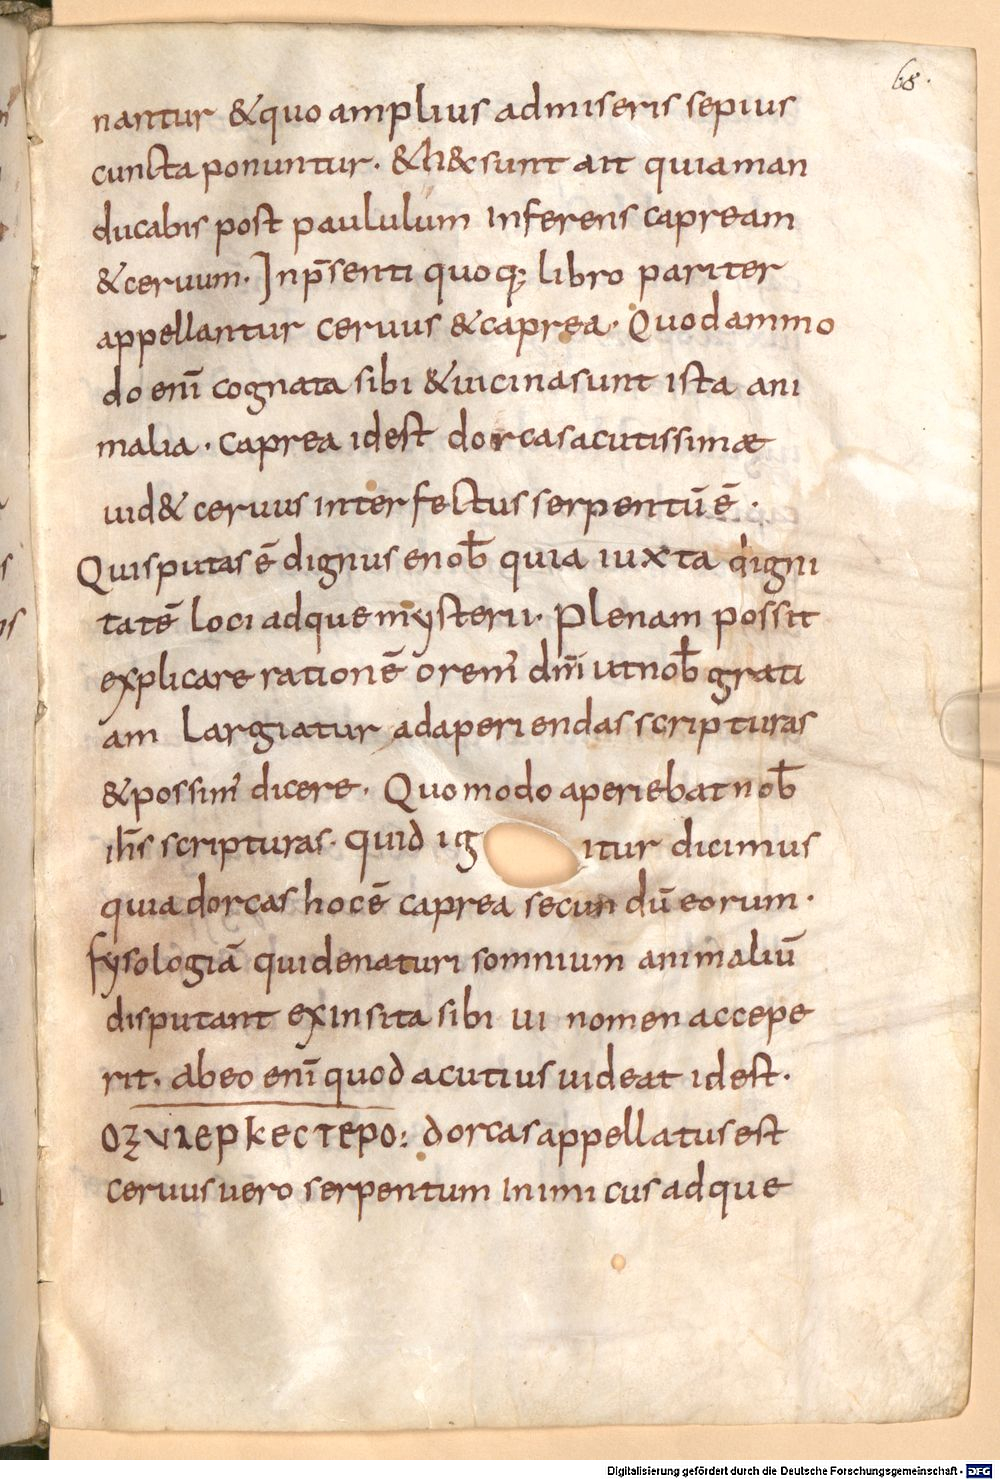 68.
nantur &quo amplius admiseris sepius
cuncta ponuntur. &h&sunt ait quia man
ducabis post paululum inferens capream
&ceruum. In p̄senti quoq; libro pariter
appellantur ceruus &caprea. Quodammo
do enī cognata sibi &uicina sunt ista ani
malia. caprea idest dorcas acutissimæ
uid& ceruus interfectus serpentū ē.
Quis putas ē dignus e nob̄ quia iuxta digni
tatē loci adque mysterii. Plenam possit
explicare rationē orem̄ dn̄m ut nob̄ grati
am Largiatur adaperiendas scripturas
&possim̄ dicere. Quomodo aperiebat nob̄
ih̄s scripturas. quid ig itur dicimus
quia dorcas hoc ē caprea secundū eorum.
fysologiā qui de naturi somnium animaliū
disputant ex insita sibi ui nomen accepe
rit. ab eo enī quod acutius uideat idest.
οξ νιερκεστερο: dorcas appellatus est
ceruus uero serpentum inimicus adque
Digitalisierung gefördert durch die Deutsche Forschungsgemeinschaft - DFG